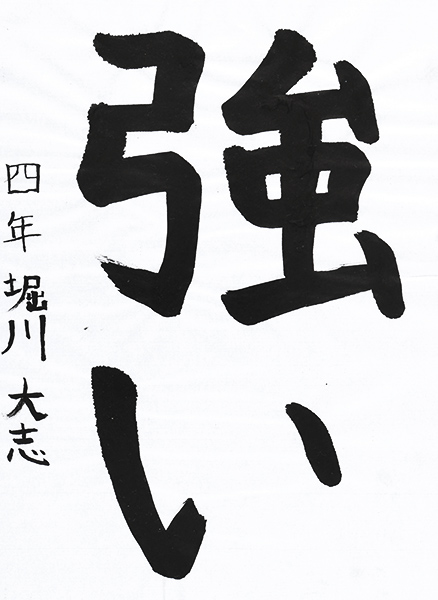 強い
四年 堀川 大志